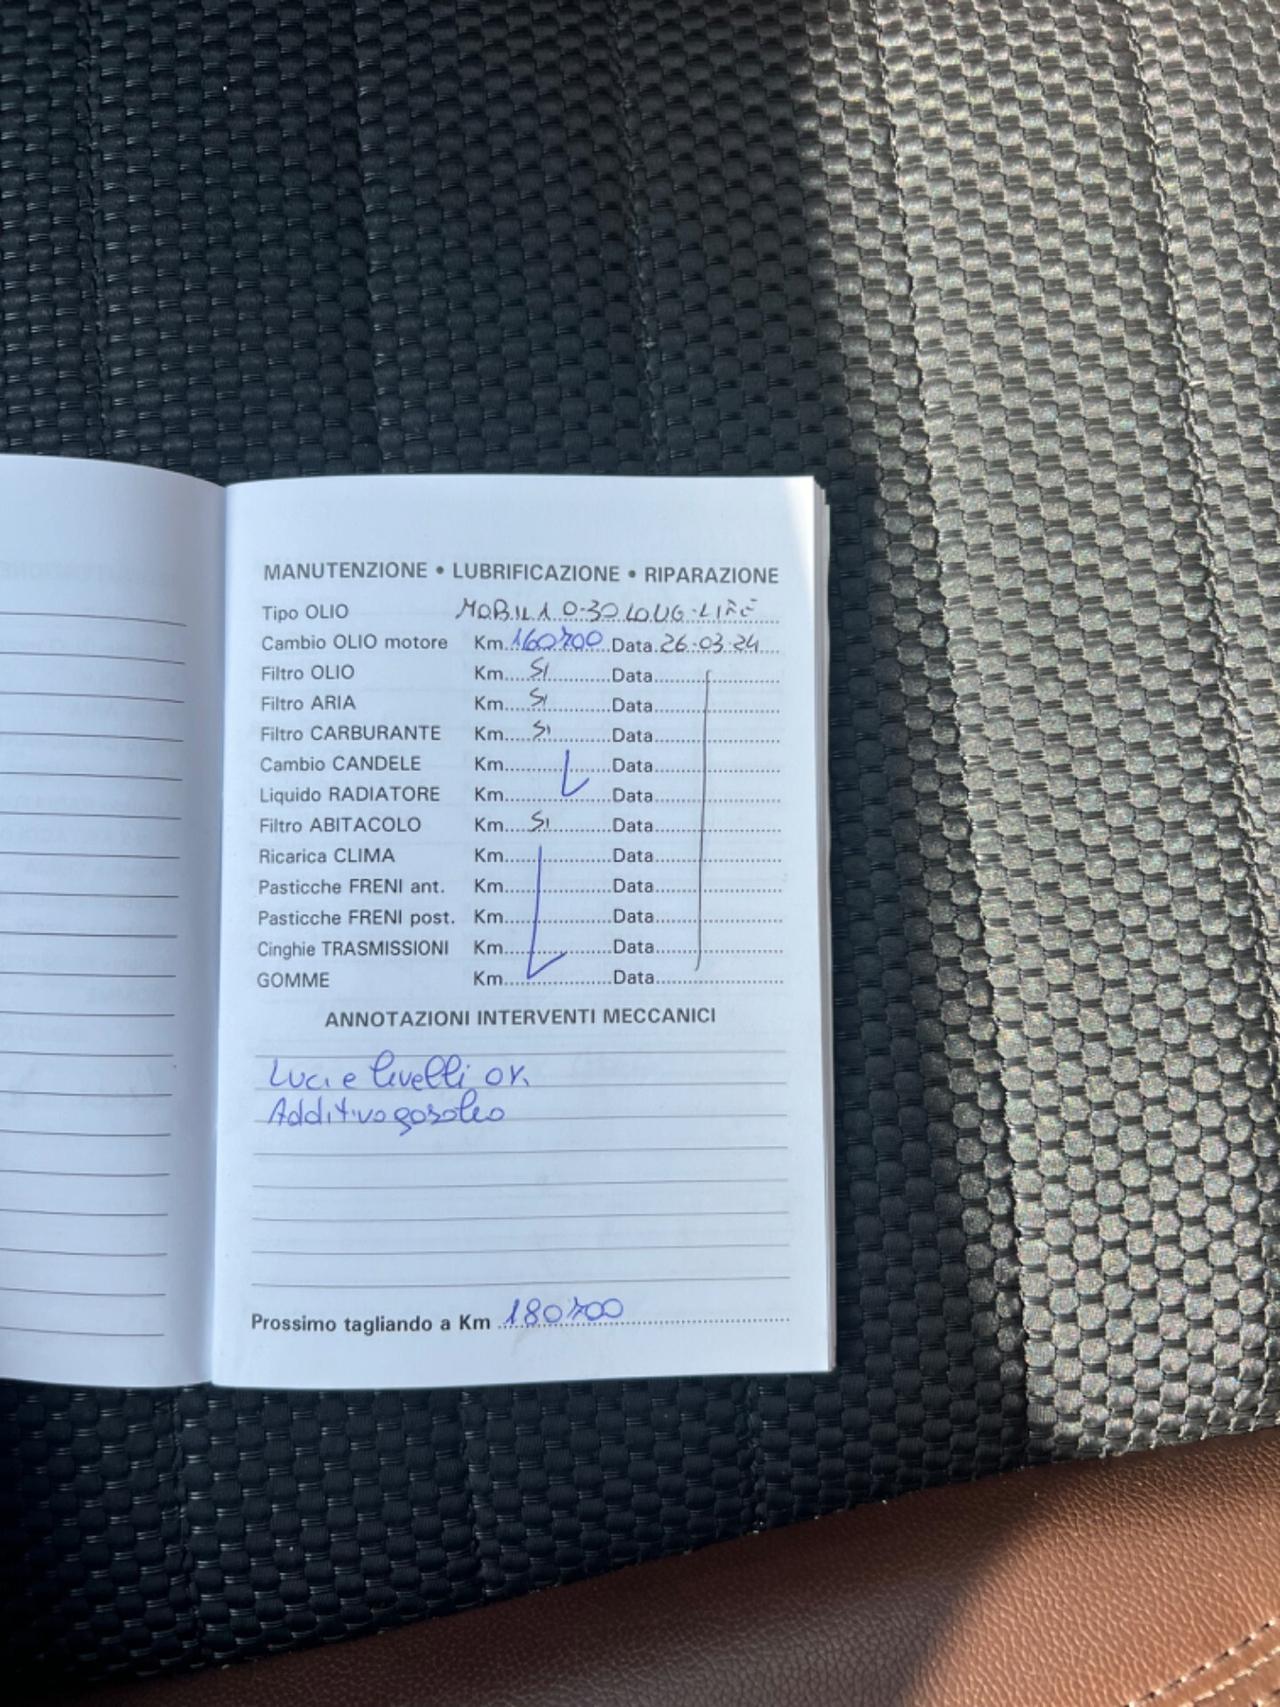 MANUTENZIONE • LUBRIFICAZIONE • RIPARAZIONE
Tipo OLIO MOBIL 1 0-30 LOUG-LIFE
Cambio OLIO motore Km. 160700 Data. 26.03.24
Filtro OLIO Km. SI Data
Filtro ARIA Km. SI Data
Filtro CARBURANTE Km. SI Data
Cambio CANDELE Km. Data
Liquido RADIATORE Km. Data
Filtro ABITACOLO Km. SI Data
Ricarica CLIMA Km. Data
Pasticche FRENI ant. Km. Data
Pasticche FRENI post. Km. Data
Cinghie TRASMISSIONI Km. Data
GOMME Km. Data
ANNOTAZIONI INTERVENTI MECCANICI
Luci e livelli ok.
Additivo gasolio
Prossimo tagliando a Km 180700